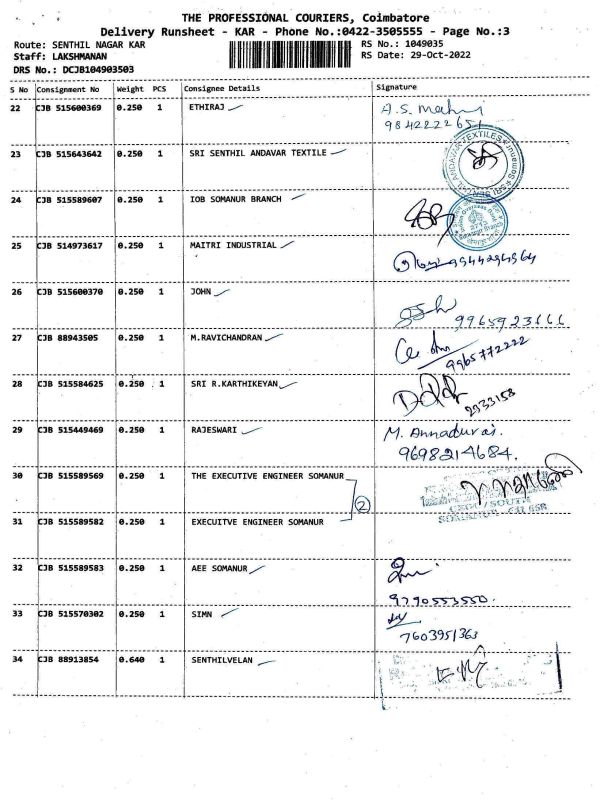 THE PROFESSIONAL COURIERS, Coimbatore
Delivery Runsheet - KAR - Phone No.:0422-3505555 - Page No.:3
Route: SENTHIL NAGAR KAR
RS No.: 1049035
Staff: LAKSHMANAN
RS Date: 29-Oct-2022
DRS No.: DCJB104903503
S No Consignment No Weight PCS Consignee Details Signature
22 CJB 515600369 0.250 1 ETHIRAJ
23 CJB 515643642 0.250 1 SRI SENTHIL ANDAVAR TEXTILE
24 CJB 515589607 0.250 1 IOB SOMANUR BRANCH
25 CJB 514973617 0.250 1 MAITRI INDUSTRIAL
26 CJB 515600370 0.250 1 JOHN
27 CJB 88943505 0.250 1 M.RAVICHANDRAN
9965772222
28 CJB 515584625 0.250 1 SRI R.KARTHIKEYAN
2933158
29 CJB 515449469 0.250 1 RAJESWARI M. Annadurai.
9698214684.
30 CJB 515589569 0.250 1 THE EXECUTIVE ENGINEER SOMANUR
2
31 CJB 515589582 0.250 1 EXECUITVE ENGINEER SOMANUR
32 CJB 515589583 0.250 1 AEE SOMANUR
9790553550.
33 CJB 515570302 0.250 1 SIMN
7603951363
34 CJB 88913854 0.640 1 SENTHILVELAN